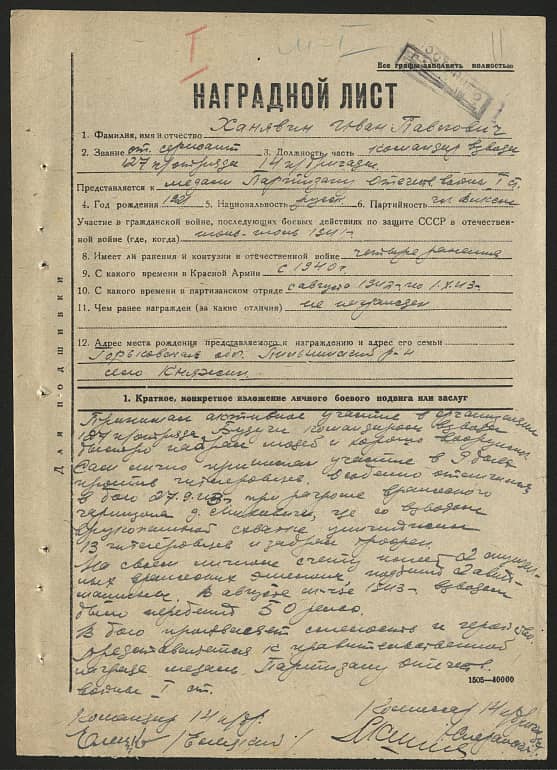 I
М-I
11
Все графы заполнять полностью
НАГРАДНОЙ ЛИСТ
1. Фамилия, имя и отчество Ханявин Иван Павлович
2. Звание ст. сержант 3. Должность часть командир взвода
127 п/отряда 14 п/бригады
Представляется к медали Партизану Отечеств. войны I ст.
4. Год рождения 5. Национальность русск. 6. Партийность чл. ВЛКСМ
Участие в гражданской войне, последующих боевых действиях по защите СССР в отечествен-
ной войне (где, когда) 1941
8. Имеет ли ранения и контузии в отечественной войне четыре ранения
9. С какого времени в Красной Армии с 1940 г.
10. С какого времени в партизанском отряде с августа по 1.X.43
11. Чем ранее награжден (за какие отличия) не награжден
12. Адрес места рождения представляемого к награждению и адрес его семьи
Горьковская обл. р-н
село Княжин
Для подшивки
1. Краткое, конкретное изложение личного боевого подвига или заслуг
Принимал активное участие в организации
127 п/отряда. Будучи командиром взвода
быстро набрал людей и хорошо вооружил.
Сам лично принимал участие в 9 боях
против гитлеровцев. Особенно отличился
в бою 27.9.43 при разгроме вражеского
гарнизона д. где со взводом
в рукопашной схватке уничтожил
13 гитлеровцев и забрал трофеи.
На своем личном счету имеет 02
вражеских эшелона, подбито 2 авто-
машины. В августе м-це 1943 взводом
было перебито 50 рельс.
В бою проявляет смелость и геройство.
Представляется к правительственной
награде медали Партизану отечеств.
войны I ст.
1505—40000
Командир 14 п/бр.
Комиссар 14 п/бригады